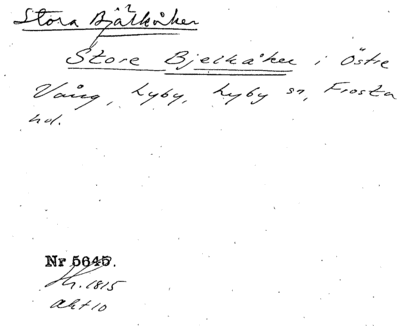 Stora Bjälkåker
Store Bjelkåker i Östre
Vång, Lyby, Lyby sn, Frosta
hd.
Nr 5645.
1815
akt 10